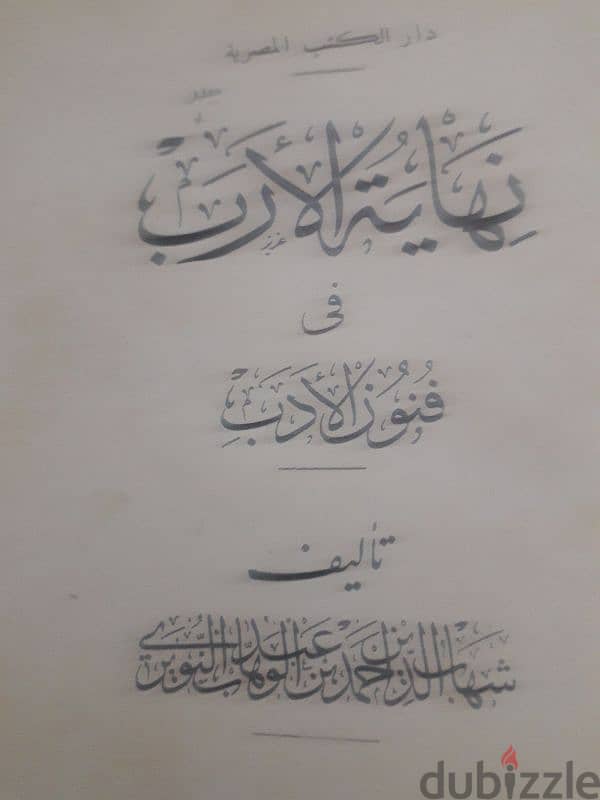 دار الكتب المصرية
نهاية الأرب
في
فنون الأدب
تأليف
شهاب الدين أحمد بن عبد الوهاب النويري
dubizzle